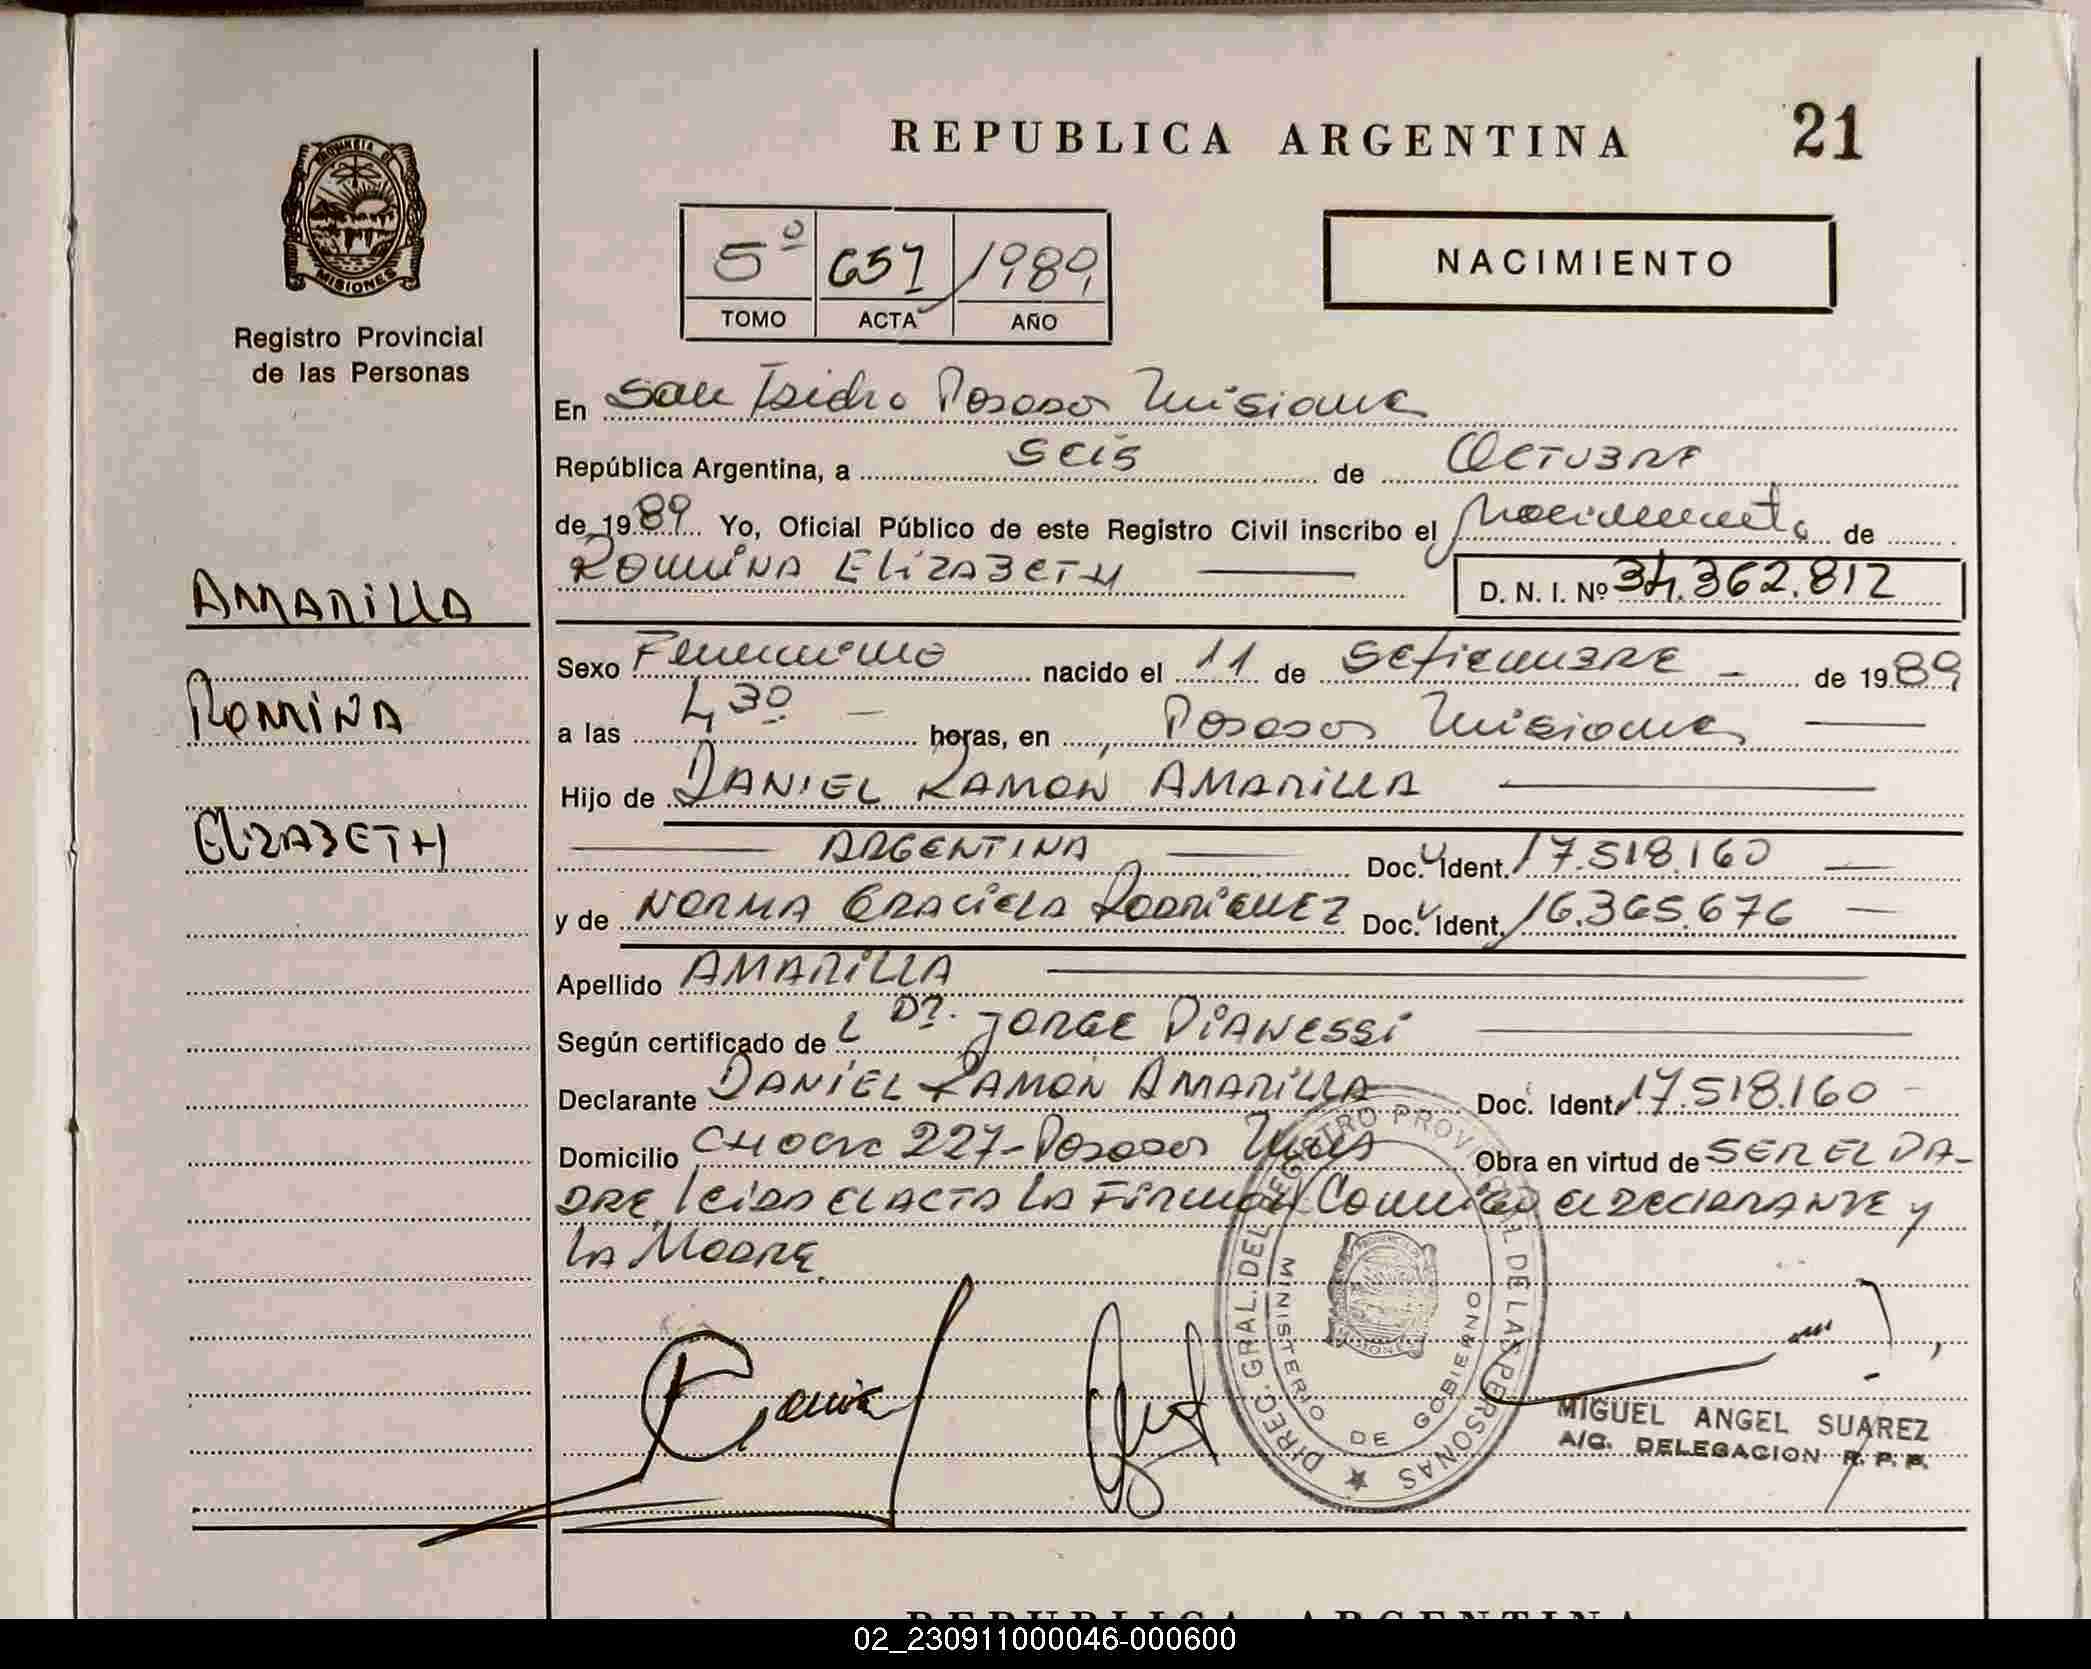 REPUBLICA ARGENTINA
21
PROVINCIA DE
MISIONES
Registro Provincial
de las Personas
5º 657 1989
TOMO ACTA AÑO
NACIMIENTO
En San Isidro Posadas Misiones
República Argentina, a seis de OCTUBRE
de 1989 Yo, Oficial Público de este Registro Civil inscribo el Nacimiento de
ROMINA ELIZABETH
D. N. I. Nº 34.362.812
AMARILLA
ROMINA
ELIZABETH
Sexo Femenino nacido el 11 de SETIEMBRE de 1989
a las 4,30 horas, en Posadas Misiones
Hijo de DANIEL RAMON AMARILLA
ARGENTINA Doc. Ident. 17.518.160
y de NORMA GRACIELA RODRIGUEZ Doc. Ident. 16.365.676
Apellido AMARILLA
Según certificado de Dr. JORGE PIANESSI
Declarante DANIEL RAMON AMARILLA Doc. Ident. 17.518.160
Domicilio 227 - Posadas Mnes Obra en virtud de SER EL PA-
DRE. leida el ACTA LA Firman Conmigo el DECLARANTE y
LA MADRE
DIREC. GRAL. DEL REGISTRO PROVINCIAL DE LAS PERSONAS
MINISTERIO DE GOBIERNO
MISIONES
MIGUEL ANGEL SUAREZ
A/C. DELEGACION R. P. P.
REPUBLICA ARGENTINA
02_230911000046-000600